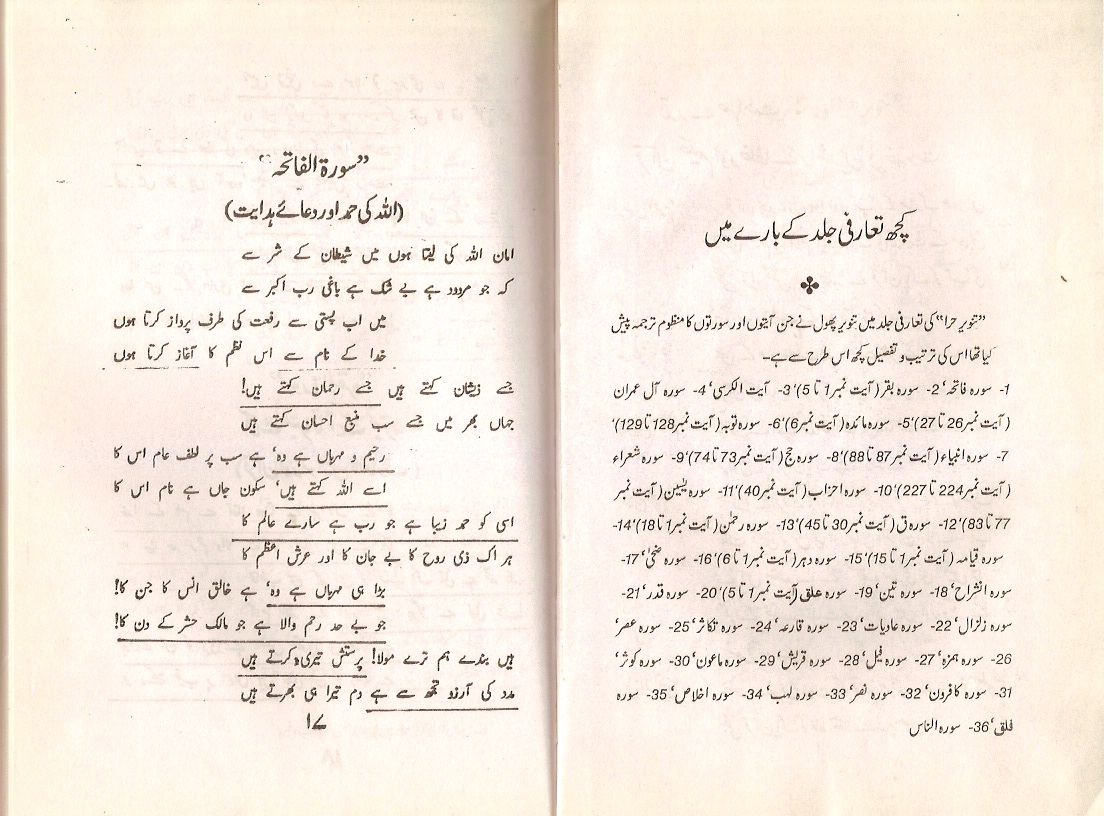 کچھ تعارفی جلد کے بارے میں
”تنویر حرا“ کی تعارفی جلد میں تنویر پھول نے جن آیتوں اور سورتوں کا منظوم ترجمہ پیش
کیا تھا اس کی ترتیب و تفصیل کچھ اس طرح سے ہے۔
1- سورہ فاتحہ‘ 2- سورہ بقر (آیت نمبر 1 تا 5)‘ 3- آیت الکرسی‘ 4- سورہ آل عمران
(آیت نمبر 26 تا 27)‘ 5- سورہ مائدہ (آیت نمبر 6)‘ 6- سورہ توبہ (آیت نمبر 128 تا 129)‘
7- سورہ انبیاء (آیت نمبر 87 تا 88)‘ 8- سورہ حج (آیت نمبر 73 تا 74)‘ 9- سورہ شعراء
(آیت نمبر 224 تا 227)‘ 10- سورہ احزاب (آیت نمبر 40)‘ 11- سورہ یٰسین (آیت نمبر
77 تا 83)‘ 12- سورہ ق (آیت نمبر 30 تا 45)‘ 13- سورہ رحمٰن (آیت نمبر 1 تا 18)‘ 14-
سورہ قیامہ (آیت نمبر 1 تا 15)‘ 15- سورہ دہر (آیت نمبر 1 تا 6)‘ 16- سورہ ضحیٰ‘ 17-
سورہ انشراح‘ 18- سورہ تین‘ 19- سورہ علق (آیت نمبر 1 تا 5)‘ 20- سورہ قدر‘ 21-
سورہ زلزال‘ 22- سورہ عادیات‘ 23- سورہ قارعہ‘ 24- سورہ تکاثر‘ 25- سورہ عصر‘
26- سورہ ہمزہ‘ 27- سورہ فیل‘ 28- سورہ قریش‘ 29- سورہ ماعون‘ 30- سورہ کوثر‘
31- سورہ کافرون‘ 32- سورہ نصر‘ 33- سورہ لہب‘ 34- سورہ اخلاص‘ 35- سورہ
فلق‘ 36- سورہ الناس
”سورۃ الفاتحہ“
(اللہ کی حمد اور دعائے ہدایت)
امان اللہ کی لیتا ہوں میں شیطان کے شر سے
کہ جو مردود ہے بے شک ہے باغی رب اکبر سے
میں اب پستی سے رفعت کی طرف پرواز کرتا ہوں
خدا کے نام سے اس نظم کا آغاز کرتا ہوں
جسے ذیشان کہتے ہیں جسے رحمان کہتے ہیں!
جہاں بھر میں جسے سب منبع احسان کہتے ہیں
رحیم و مہرباں ہے وہ‘ ہے سب پر لطف عام اس کا
اسے اللہ کہتے ہیں‘ سکون جاں ہے نام اس کا
اسی کو حمد زیبا ہے جو رب ہے سارے عالم کا
ہر اک ذی روح کا بے جان کا اور عرش اعظم کا
بڑا ہی مہرباں ہے وہ‘ ہے خالق انس کا جن کا!
جو بے حد رحم والا ہے جو مالک حشر کے دن کا!
ہیں بندے ہم ترے مولا! پرستش تیری کرتے ہیں
مدد کی آرزو تجھ سے ہے دم تیرا ہی بھرتے ہیں
۱۷